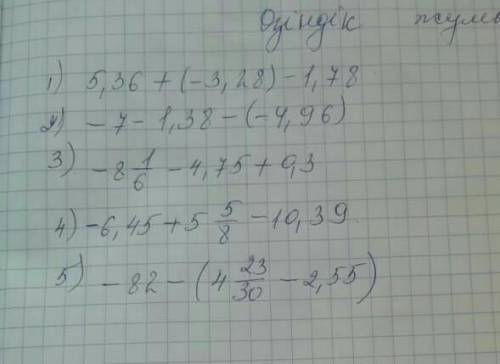 Өзіндік жұмы
1) 5,36 + (-3,28) - 1,78
2) - 7 - 1,38 - (-4,96)
3) - 8 1/6 - 4,75 + 0,3
4) -6,45 + 5 5/8 - 10,39
5) - 82 - (4 23/30 - 2,55)